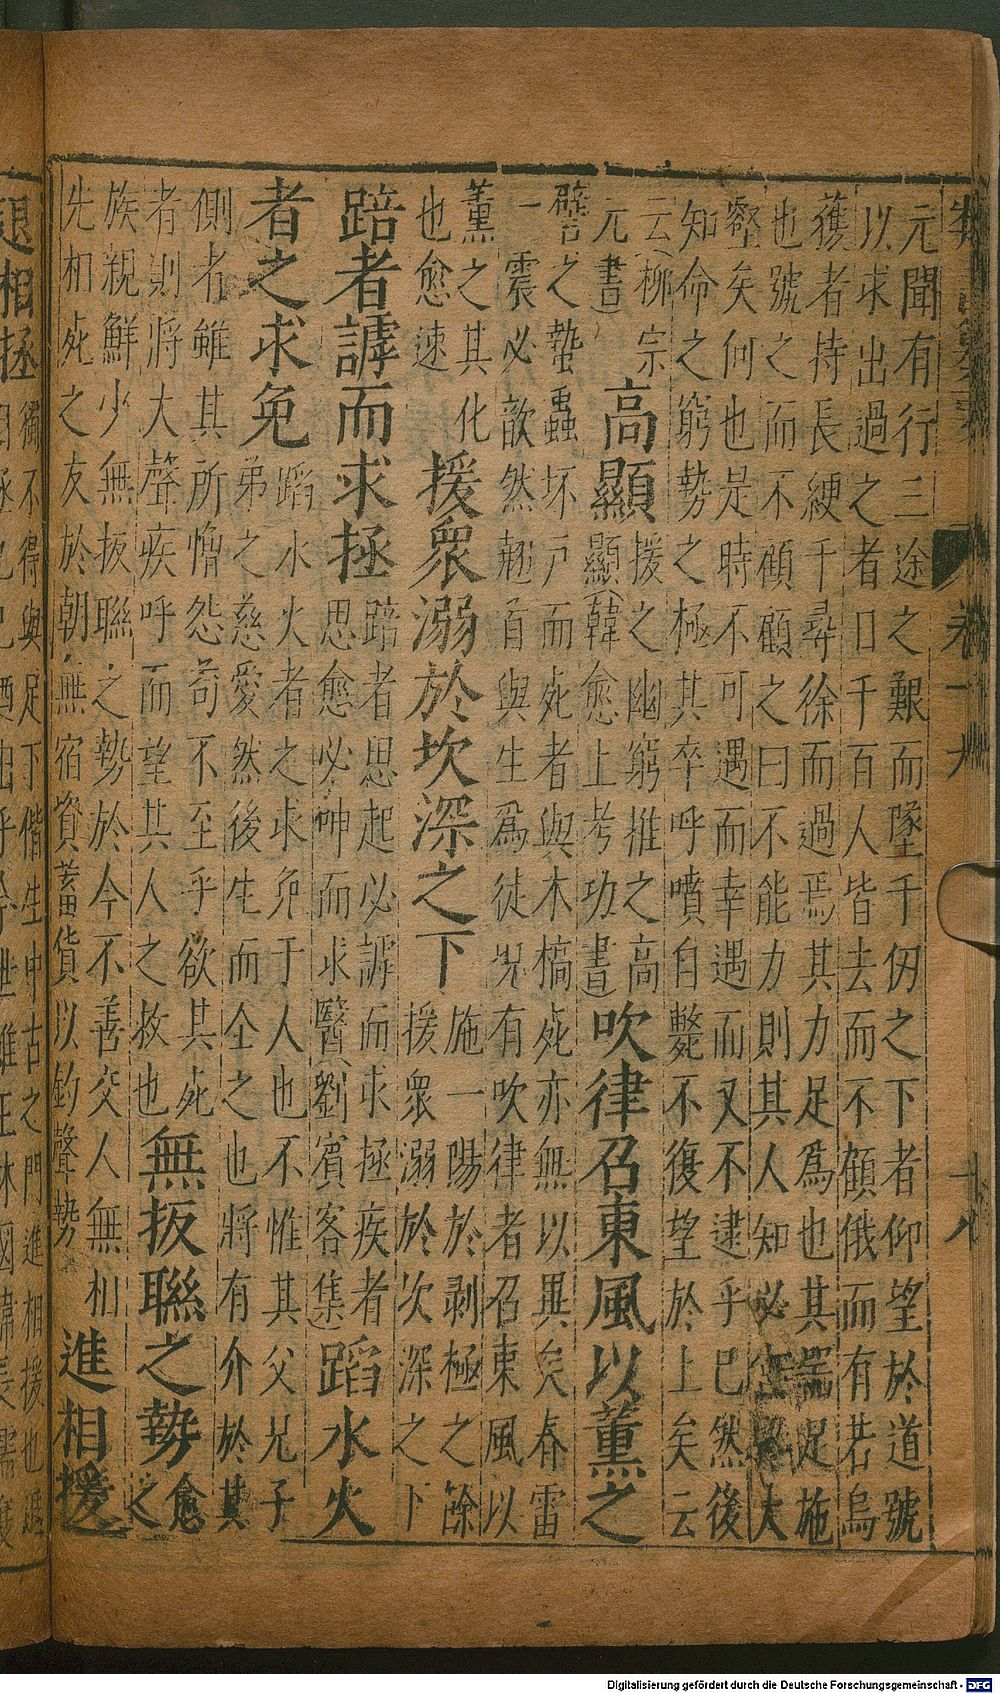 元聞有行三途之艱而墜千仞之下者仰望於道號
以求出過之者日千百人皆去而不顧俄而有若烏
獲者持長綆千尋徐而過焉其力足爲也其器足施
也號之而不顧顧之曰不能力則其人知必 大
壑矣何也是時不可遇而幸遇而又不逮乎已然後
知命之窮勢之極其卒呼噴自斃不復望於上矣云
云(柳宗
元書)
高顯
援之幽窮推之高
顯(韓愈上考功書)
吹律召東風以薰之
譬之蟄蟲坏戶而死者與木槁死亦無以異矣春雷
一震必歆然翹首與生爲徒况有吹律者召東風以
薰之其化
也愈速
援衆溺於坎深之下
施一陽於剥極之餘
援衆溺於次深之下
踣者謼而求拯
踣者思起必謼而求拯疾者
思愈必呻而求醫(劉賓客集)
蹈水火
者之求免
蹈水火者之求免于人也不惟其父兄子
弟之慈愛然後生而全之也將有介於其
側者雖其所憎怨苟不至乎欲其死
者則將大聲疾呼而望其人之救也
無扳聯之勢
愈之
族親鮮少無扳聯之勢於今不善交人無相
先相死之友於朝無宿資蓄貨以釣聲勢
進相援
退相拯
獨不得與足下偕生中古之門進相援也退
卷一九
十八
Digitalisierung gefördert durch die Deutsche Forschungsgemeinschaft - DFG